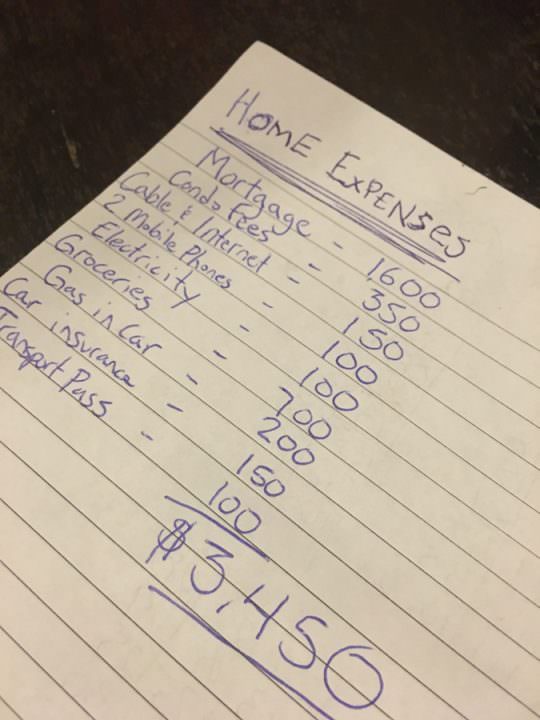 HOME EXPENSES
Mortgage - 1600
Condo Fees - 350
Cable & Internet - 150
2 Mobile Phones - 100
Electricity - 100
Groceries - 700
Gas in Car - 200
Car insurance - 150
Transport Pass - 100
$3,450